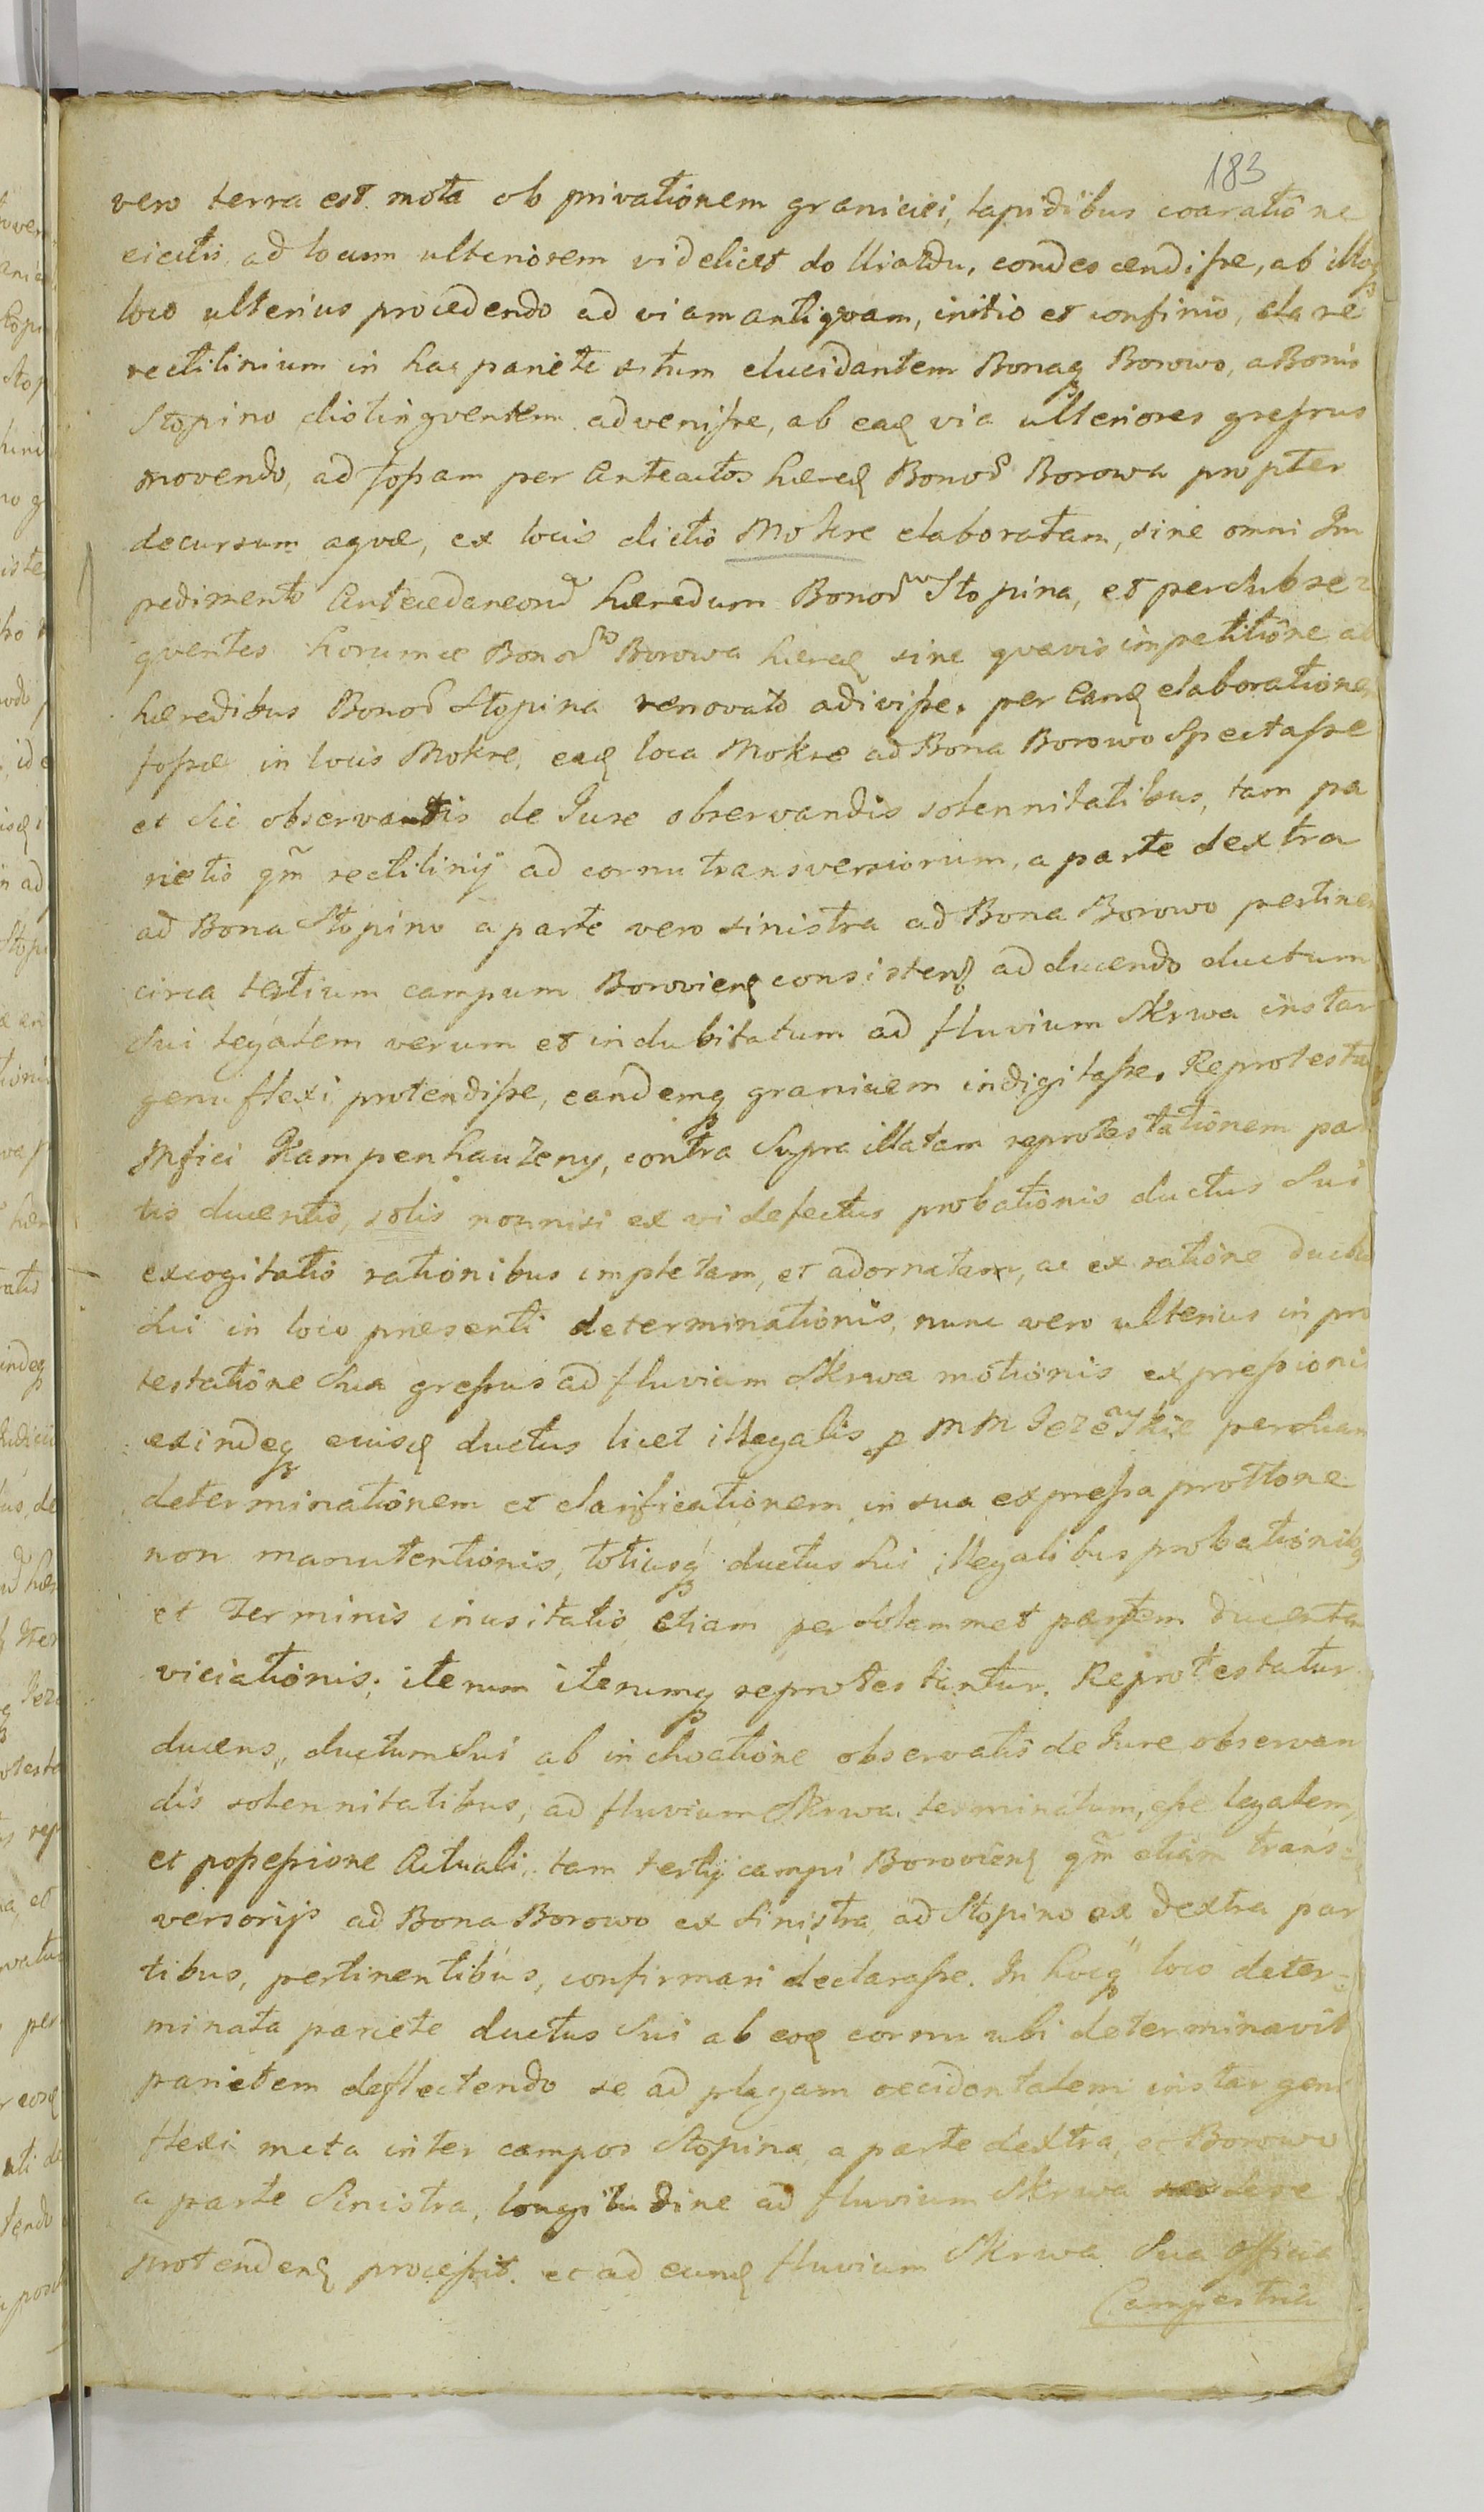 183
vero terra est mota ob privationem graniciei, lapidibus coaratione
eiectis ad locum ulteriorem videlicet do Uiazdu, condescendisse, ab illoq
loco ulterius procedendo ad viam antiqvam, initio et confinio, clare
rectilinium in hac pariete situm elucidantem Bonaq Borowo, a Bonis
Stopino distingventem advenisse, ab ead via ulteriores gressus
movendo, ad fossam per Anteactos hæred Bonor Borowa propter
decursum aqvæ, ex locis dictis Mokre elaboratam, sine omni Im
pedimento Antecedaneoru hæredum Bonor Stopina, et per Subse=
qventes horumce Bonor Borowa hæred sine qvavis impetitione ab
hæredibus Bonor Stopina renovato adivisse. per eand elaborationem
fossæ in locis Mokre, ead loca Mokre ad Bona Borowo Spectasse
et Sic observatis de Jure observandis solennitatibus, tam pa
rietis qm rectilinij ad cornu transversiorum, a parte dextra
ad Bona Stopino a parte vero sinistra ad Bona Borowo pertinen
circa tertium campum Boroviens consisten adducendo ductum
Sui legalem verum et indubitatum ad fluvium Skrwa instar
genu flexi protendisse, eandemq graniciem indigitasse. Reprotestan
Mfici Kampenhauzeny, contra Supra illatam reprotestationem par
tis ducentis, solis nonnisi ex vi defectus probationis ductus Sui
excogitatis rationibus impletam, et adornatam, ac ex ratione ductus
Sui in loco præsenti determinationis, nunc vero ulterius in pro
testatione Sua gressus ad fluvium Skrwa motionis expressionis
exindeq eiusd ductus licet illegalis p MM Jeżewskie per Suam
determinationem et clarificationem in sua expressa prottone
non manutentionis, totiusq ductus Sui illegalibus probationibq
et Terminis inusitatis etiam per Solammet partem ducentem
viciationis; iterum iterumq reprotestantur. Reprotestatur
ducens, ductum Sui ab inchoatione observatis de Jure observan
dis solennitatibus, ad fluvium Skrwa terminatum, esse legalem,
et possessione Actuali, tam tertij campi Boroviens qm etiam trans=
versorijs ad Bona Borowo ex Sinistra, ad Stopino ex dextra par
tibus, pertinentibus, confirmari declarasse. In hocq loco deter=
minata pariete ductus Sui ab eod cornu ubi determinavit
parietem deflectendo se ad plagam occidentalem instar genu
flexi meta inter campos Stopina a parte dextra, et Borowo
a parte Sinistra, longitudine ad fluvium Skrwa se
protendens processit. et ad eund fluvium Skrwa Sua officia
Campestria